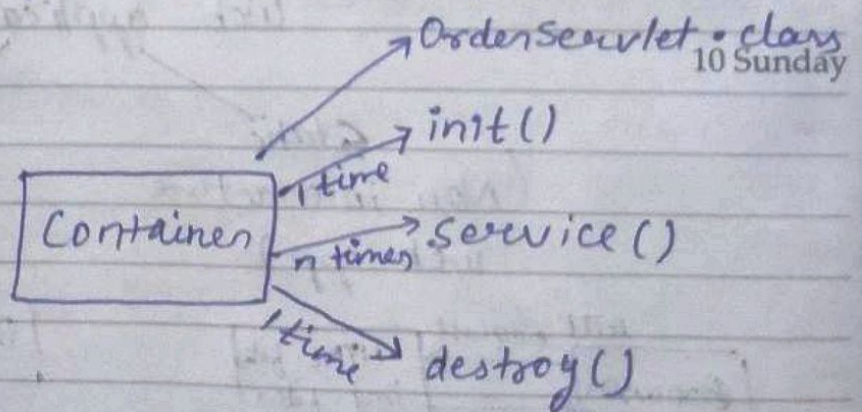 OrderServlet.class
10 Sunday
init()
1 time
Container
service()
n times
1 time
destroy()